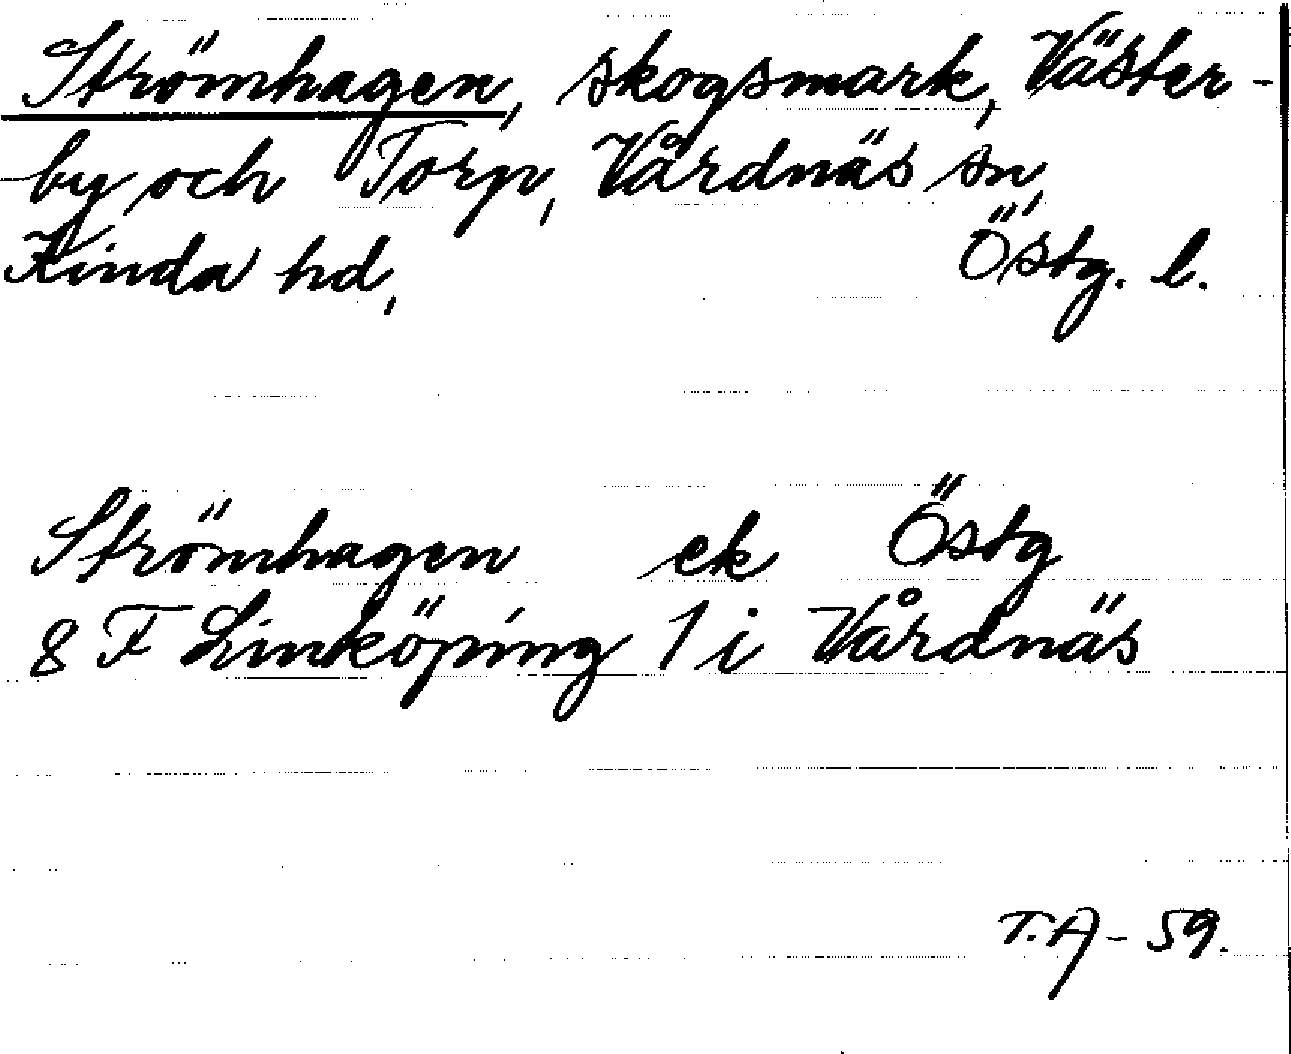 Strömhagen, skogsmark, Väster-
-by och Torp, Vårdnäs sn,
Kinda hd, Östg. l.
Strömhagen ek Östg
8 F Linköping 1 i Vårdnäs
T.A - 59.